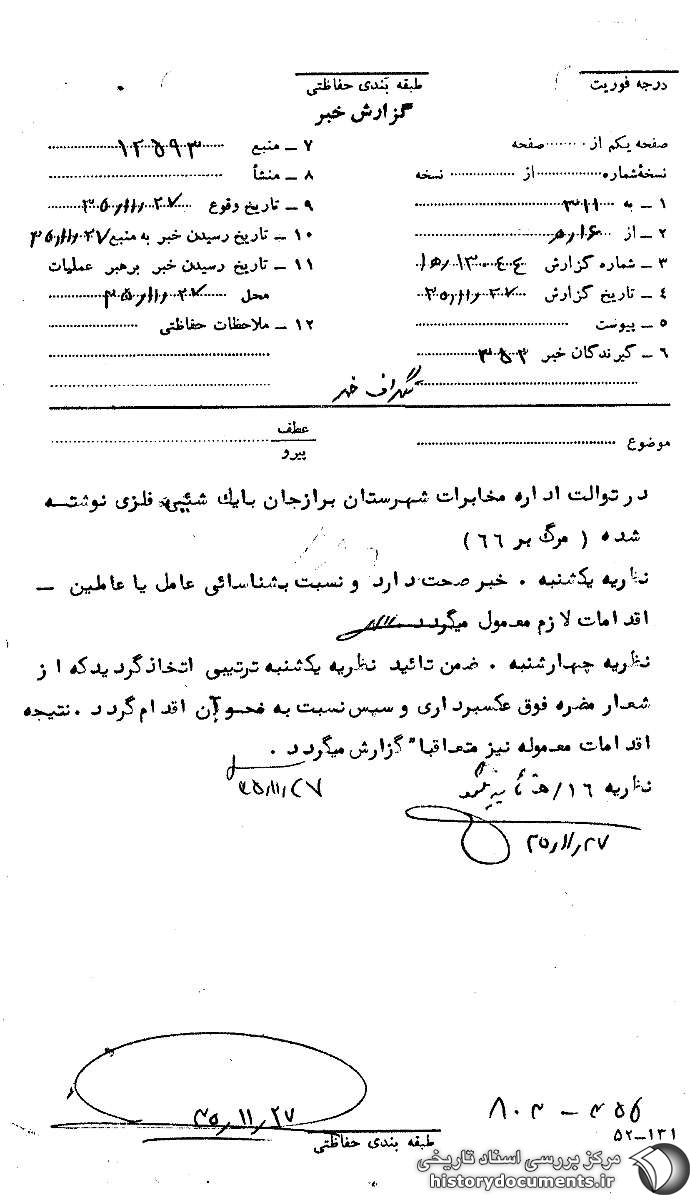 درجه فوریت
طبقه بندی حفاظتی
گزارش خبر
صفحه یکم از ........ صفحه
نسخهٔ شماره ........ از ........ نسخه
۱ ــ به ۳۱۱
۲ ــ از ۱۶/ه
۳ ــ شماره گزارش ۱۳۰۴۴/ه۱
۴ ــ تاریخ گزارش ۳۵/۱۱/۲۷
۵ ــ پیوست
۶ ــ گیرندگان خبر ۳۵۳
تلگراف خبر
۷ ــ منبع ۱۲۵۹۳
۸ ــ منشأ
۹ ــ تاریخ وقوع ۳۵/۱۱/۲۷
۱۰ ــ تاریخ رسیدن خبر به منبع ۳۵/۱۱/۲۷
۱۱ ــ تاریخ رسیدن خبر برهبر عملیات
محل ۳۵/۱۱/۲۷
۱۲ ــ ملاحظات حفاظتی
موضوع
عطف
پیرو
در توالت اداره مخابرات شهرستان برازجان بایك شئیی فلزی نوشتـه
شده ( مرگ بر ٦٦ )
نظریه یکشنبه . خبر صحت دارد و نسبت بشناسائی عامل یا عاملین ــ
اقدامات لازم معمول میگردد .
نظریه چهارشنبه . ضمن تائید نظریه یکشنبه ترتیبی اتخاذ گردید که از
شعار مضره فوق عکسبرداری و سپس نسبت به محو آن اقدام گردد . نتیجه
اقدامات معموله نیز متعاقبا" گزارش میگردد .
نظریه ۱۶/ه تأیید میگردد
۳۵/۱۱/۲۷
۳۵/۱۱/۲۷
۳۵/۱۱/۲۷
طبقه بندی حفاظتی
۵۲ــ۱۳۱
مرکز بررسی اسناد تاریخی
historydocuments.ir